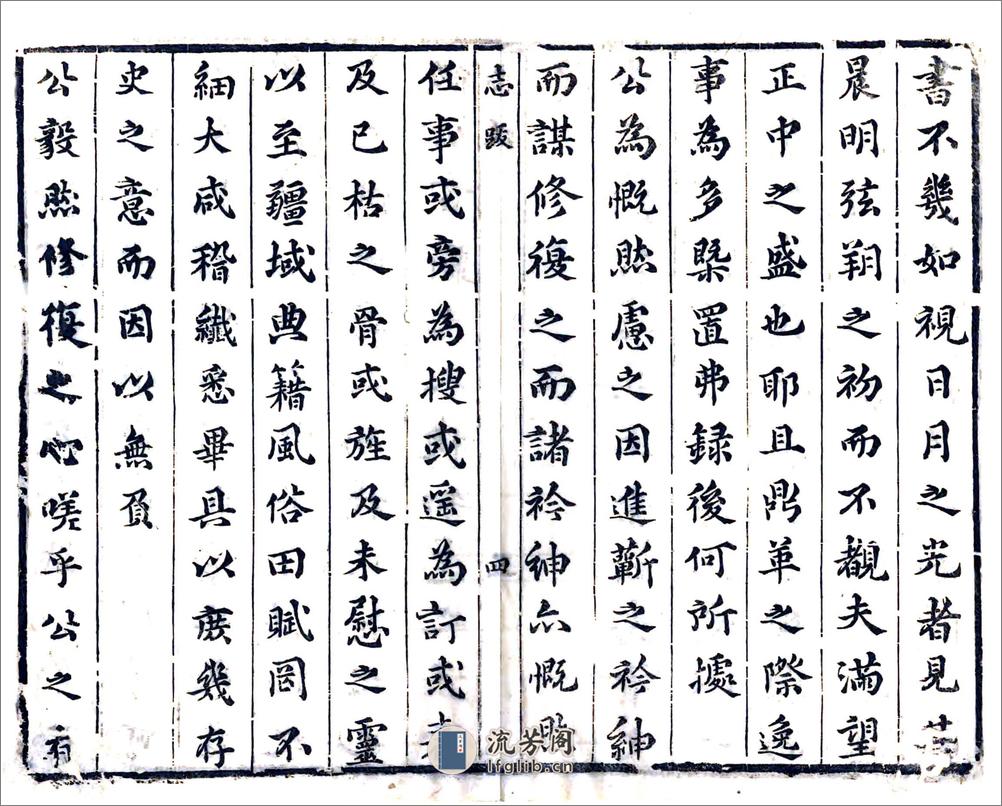 書不幾如視日月之光者見其
晨明弦朔之初而不觀夫滿望
正中之盛也耶且鼎革之際逸
事為多槩置弗録後何所據
公為慨然慮之因進蘄之衿紳
而謀修復之而諸衿紳亦慨然
志跋
四
任事或旁為搜或遥為訂或
及已枯之骨或旌及未慰之靈
以至疆域典籍風俗田賦罔不
細大咸稽纖悉畢具以庶幾存
史之意而因以無負
公毅然修復之心嗟乎公之有
流芳阁
lfglib.cn